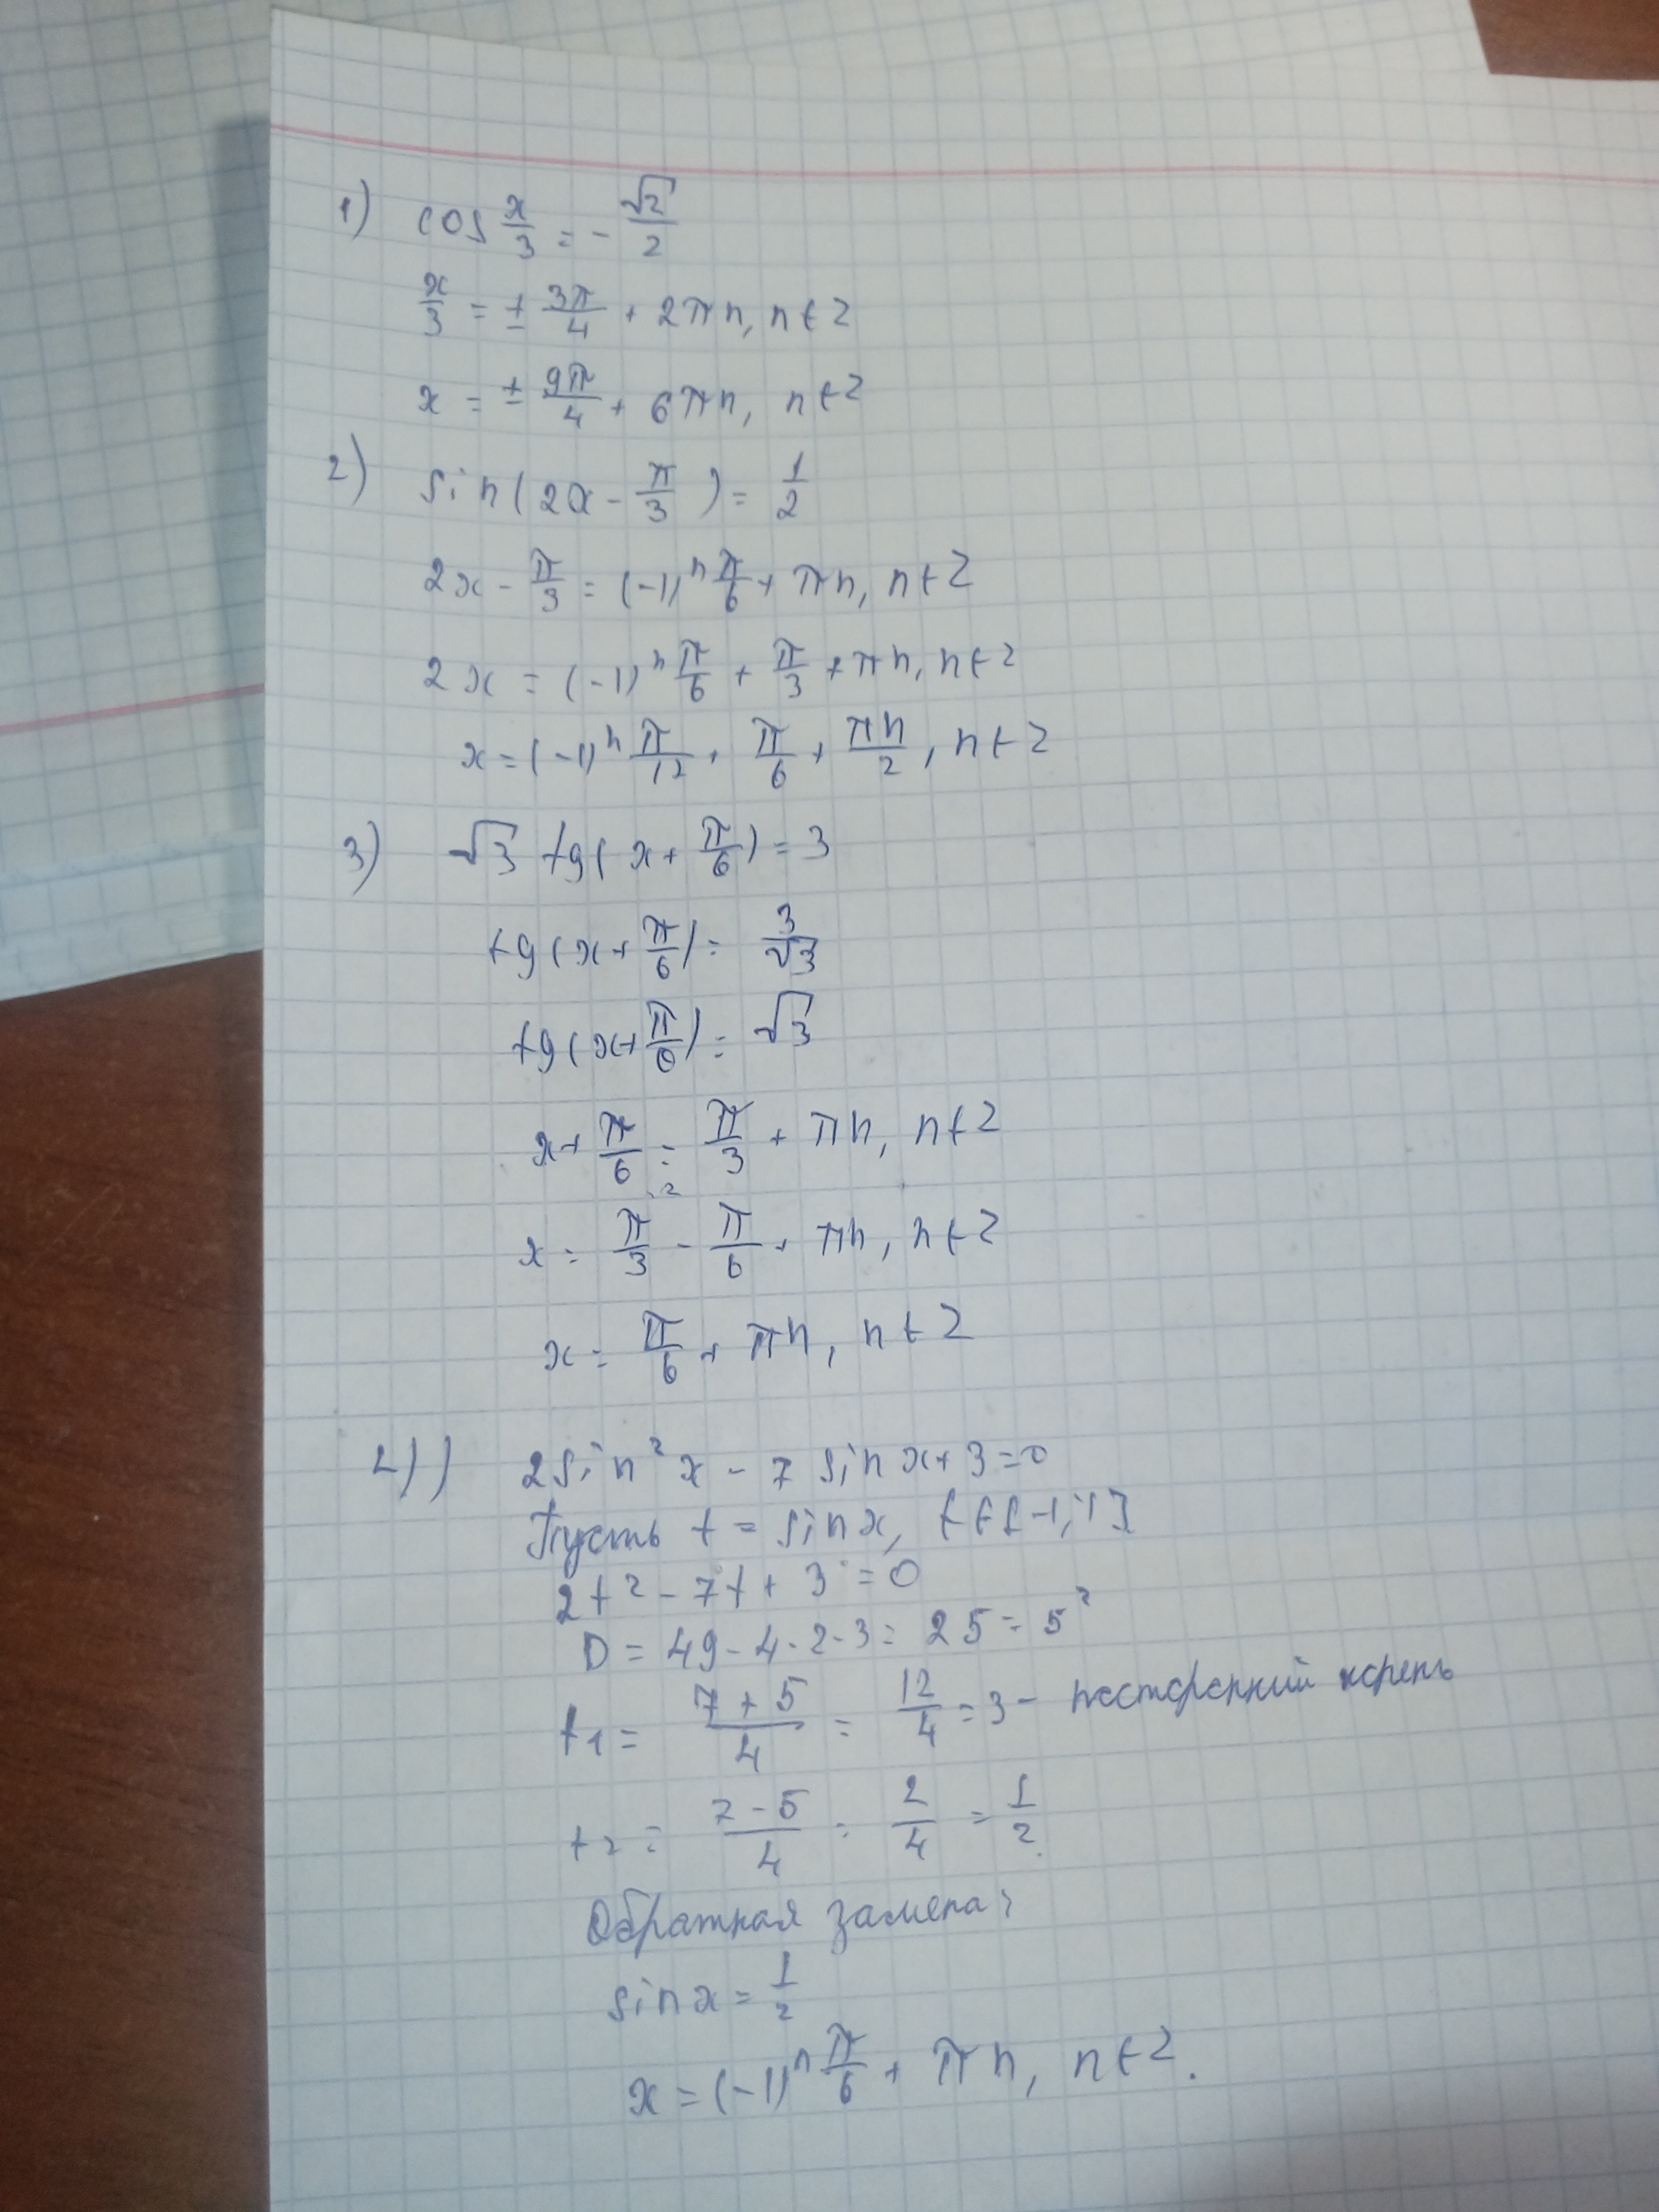 1) cos x/3 = -√2/2
x/3 = ± 3π/4 + 2πn, n ∈ Z
x = ± 9π/4 + 6πn, n ∈ Z
2) sin(2x - π/3) = 1/2
2x - π/3 = (-1)ⁿ π/6 + πn, n ∈ Z
2x = (-1)ⁿ π/6 + π/3 + πn, n ∈ Z
x = (-1)ⁿ π/12 + π/6 + πn/2, n ∈ Z
3) √3 tg(x + π/6) = 3
tg(x + π/6) = 3/√3
tg(x + π/6) = √3
x + π/6 = π/3 + πn, n ∈ Z
x = π/3 - π/6 + πn, n ∈ Z
x = π/6 + πn, n ∈ Z
4) 2sin²x - 7 sin x + 3 = 0
Пусть t = sin x, t ∈ [-1; 1]
2t² - 7t + 3 = 0
D = 49 - 4·2·3 = 25 = 5²
t₁ = (7 + 5)/4 = 12/4 = 3 - посторенний корень
t₂ = (7 - 5)/4 = 2/4 = 1/2
Обратная замена:
sin x = 1/2
x = (-1)ⁿ π/6 + πn, n ∈ Z.